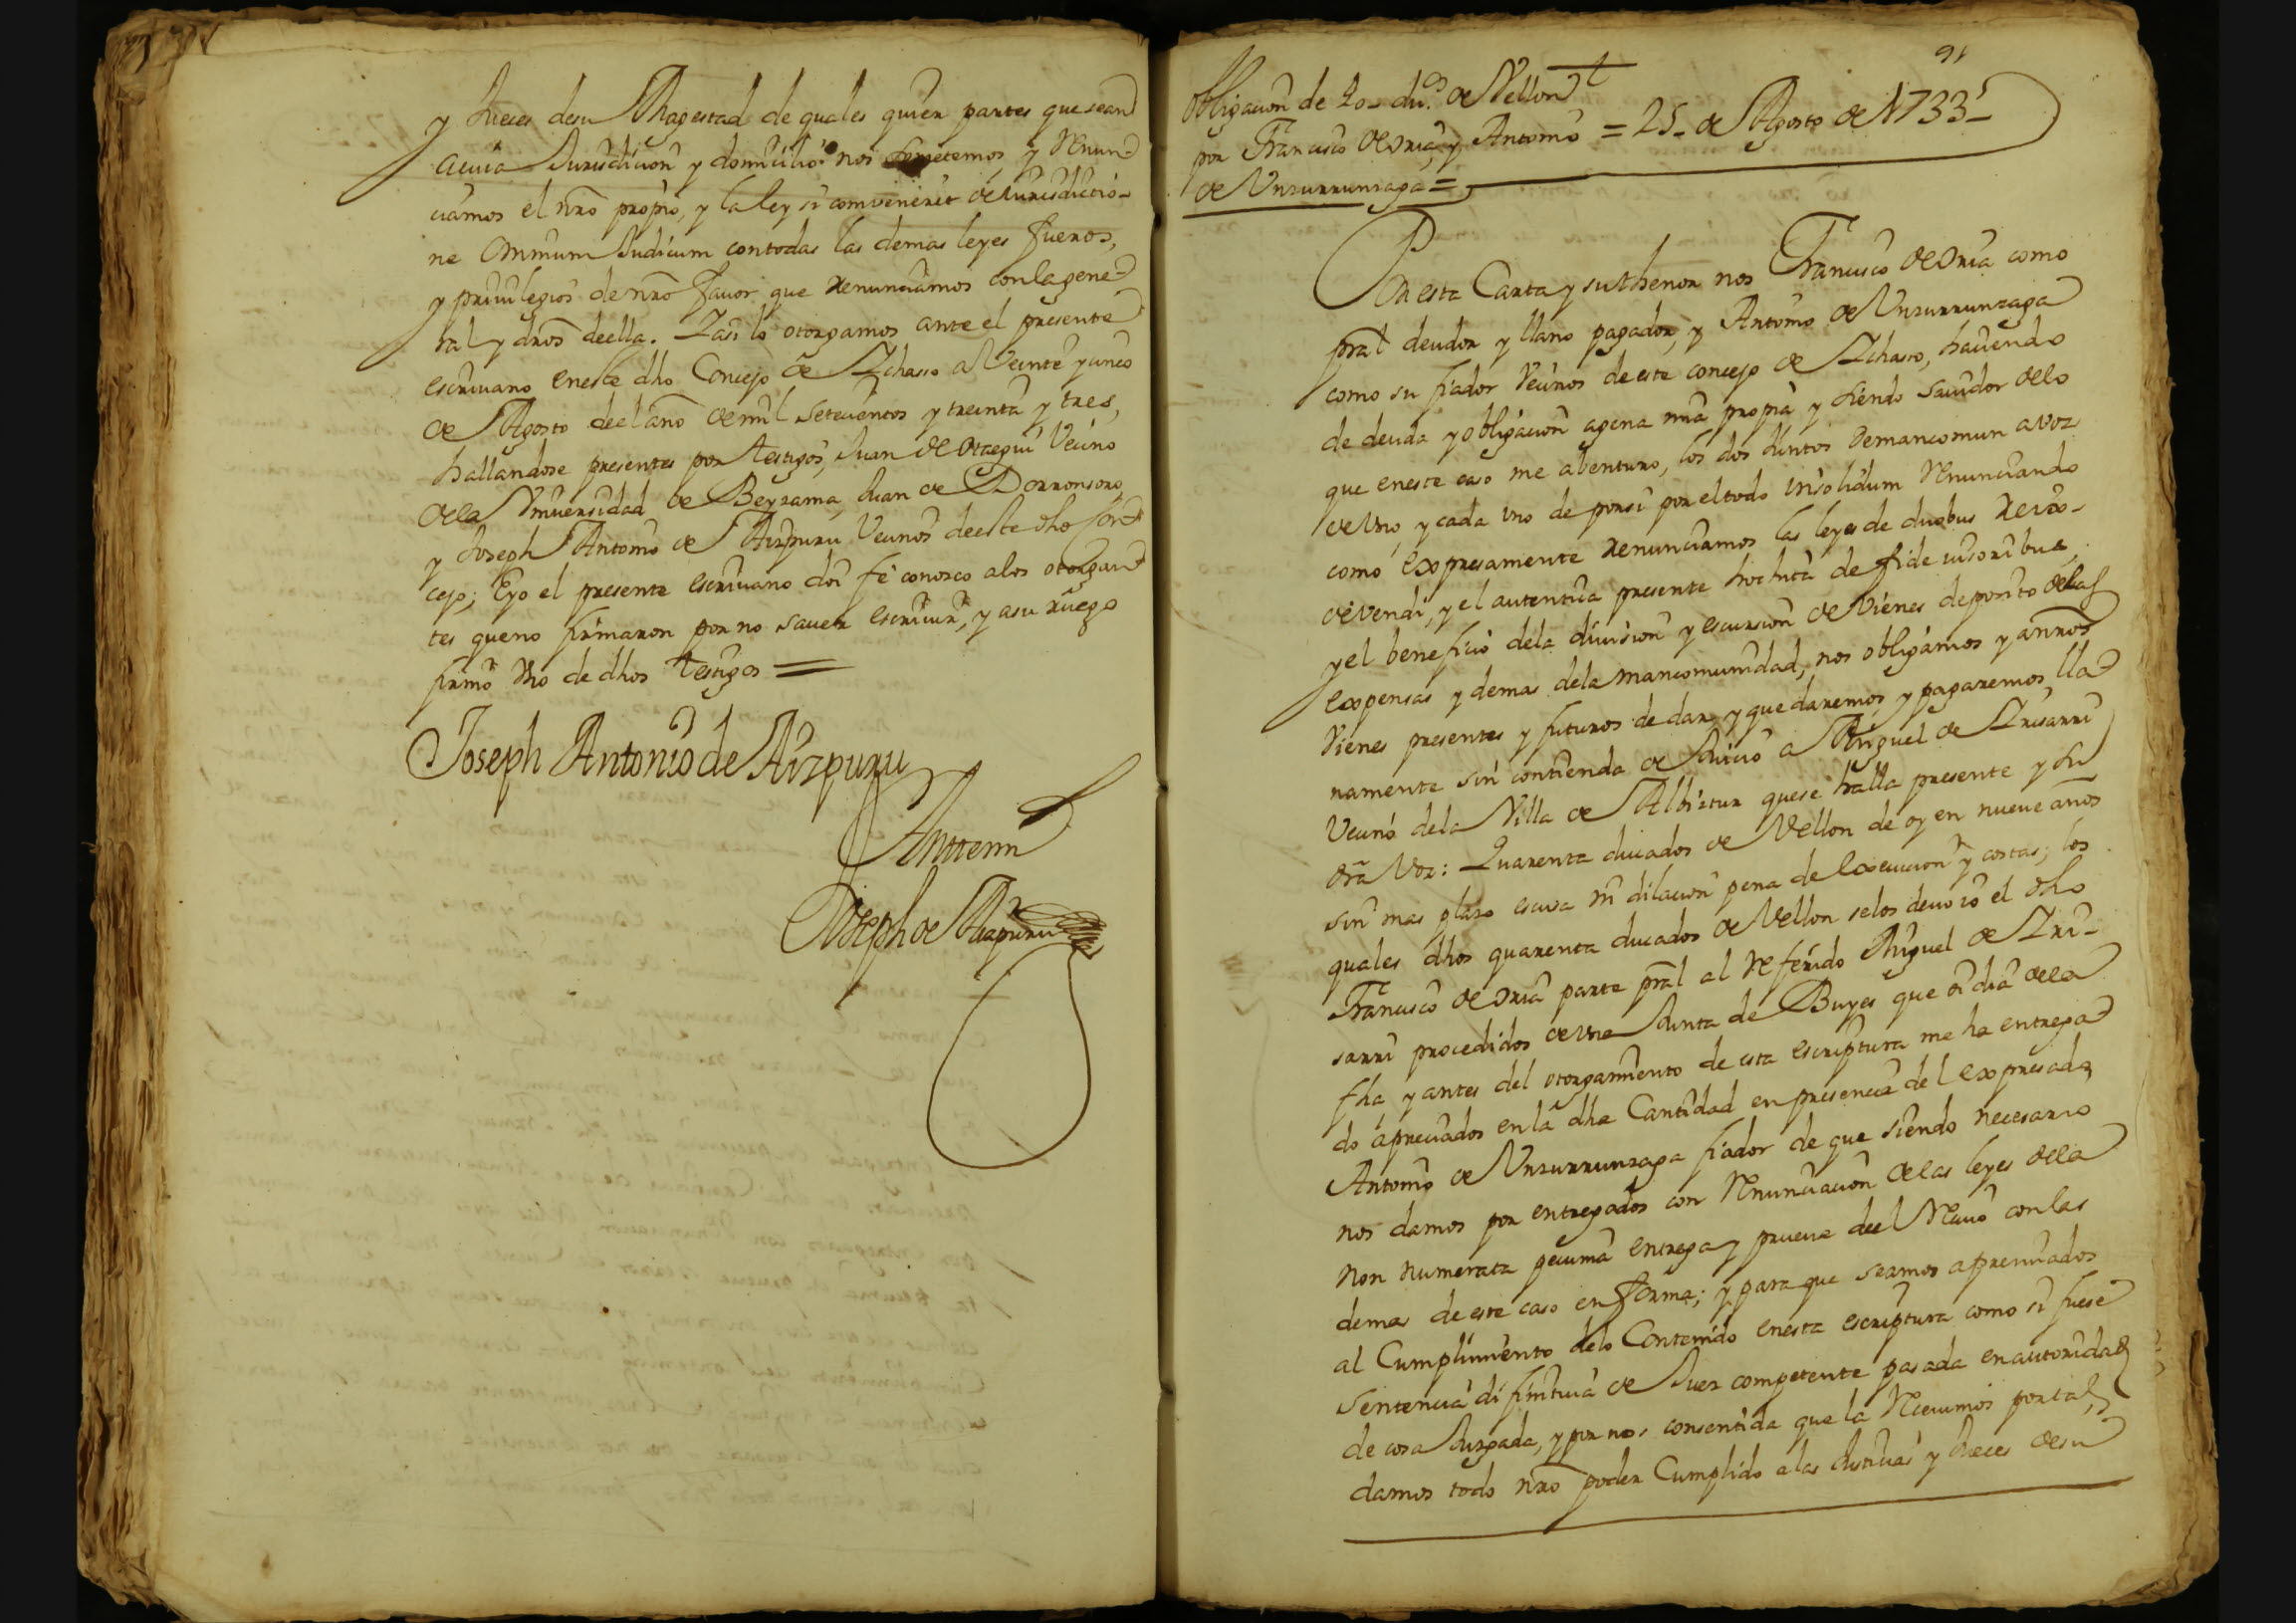 y Jueces desu Magestad de quales quier partes que sean
acuia Jurisdicion y domicilio nos sometemos y Renun-
ciamos el nro propio, y la ley si combenerit de Jurisdictio-
ne Omnium Judicum contodas las demas leyes fueros,
y privilegios de nro favor que renunciamos conlagene-
ral y dros deella. Y asi lo otorgamos ante el presente
escrivano eneste dho Concejo de Ichasso a Veinte y cinco
de Agosto deel año de mil setecientos y treinta y tres,
hallandose presentes por testigos, Juan de Otaegui Vecino
dela Vniversidad de Beyzama, Juan de Dorronsoro,
y Joseph Antonio de Aizpuru Vecinos deeste dho Con-
cejo; Eyo el presente escrivano doi fe conozco alos otorgan-
tes queno firmaron por no saver escrivir, y asu ruego
firmo Vno de dhos testigos =
Joseph Antonio de Aizpuru
Antemi
Joseph de Aizpuru
91
Obligacion de 40 duc.s de Vellon
por Francisco de Oria, y Antonio = 25 de Agosto de 1733
de Vnsurrunzaga =
Por esta Carta y suthenor nos Francisco de Oria como
pral deudor y llano pagador, y Antonio de Vnsurrunzaga
como su fiador Vecinos de este concejo de Ichasso, haciendo
de deuda y obligacion agena mia propia y siendo savidor delo
que eneste caso me abenturo, los dos Juntos demancomun avoz
de Vno, y cada Vno de porsi por eltodo insolidum Renunciando
como expresamente renunciamos las leyes de duobus rex
devendi, y el autentica presente hochita de fide iusoribus,
y el beneficio dela division y escursion de Vienes deposito delas
expensas y demas dela mancomunidad, nos obligamos y a nnros
Vienes presentes y futuros de dar y quedaremos, y pagaremos lla-
namente sin contienda de Juicio a Miguel de Irisarri
Vecino dela Villa de Albiztur quese halla presente y su
dra Voz: Quarenta ducados de Vellon de oy en nueve años
sin mas plazo escusa ni dilacion pena de execucion y costas; los
quales dhos quarenta ducados de Vellon selos devo io el dho
Francisco de Oria parte pral al Referido Miguel de Iri-
sarri procedidos de Vna Junta de Bueyes que oi dia dela
fha y antes del otorgamiento de esta escriptura me ha entrega-
do apreciados enla dha Cantidad en presencia del expresado
Antonio de Vnsurrunzaga fiador de que siendo necesario
nos damos por entregados con Renunciacion delas leyes dela
Non Numerata pecunia entrega y prueva deel Recivo conlas
demas de este caso en forma; y para que seamos apremiados
al Cumplimiento delo Contenido enesta escriptura como si fuese
Sentencia difinitiva de Juez competente pasada enautoridad
de cosa Juzgada, y por nos consentida que la Recivimos portal,
damos todo nro poder Cumplido a las Justicias y Jueces desu